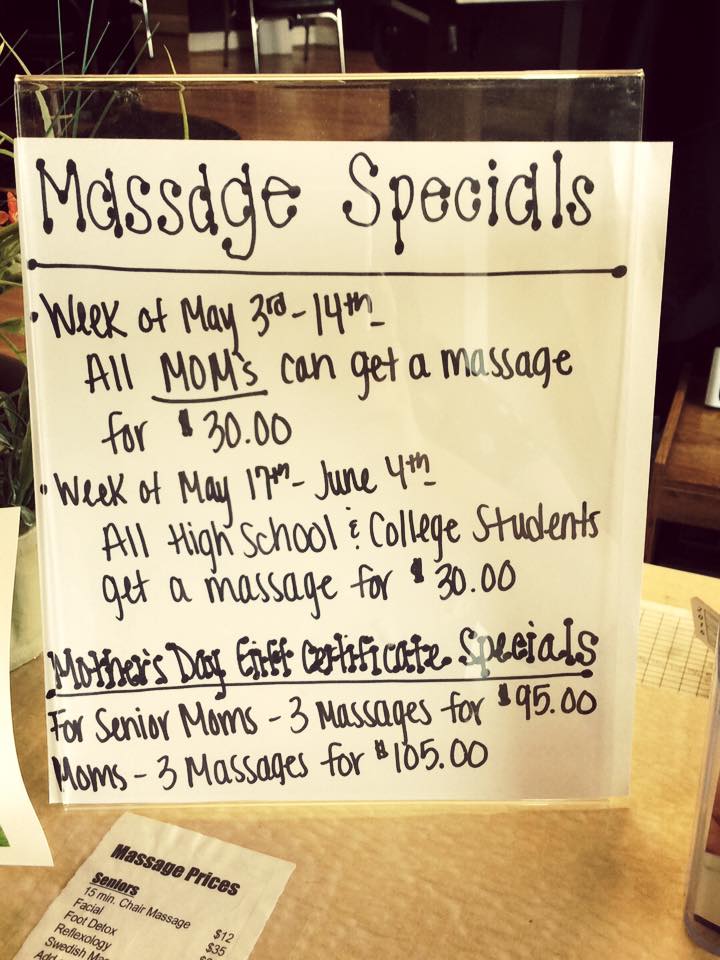 Massage Specials
• Week of May 3rd - 14th -
All MOM's can get a massage
for $30.00
• Week of May 17th - June 4th -
All High School & College Students
get a massage for $30.00
Mother's Day Gift Certificate Specials
For Senior Moms - 3 Massages for $95.00
Moms - 3 Massages for $105.00
Massage Prices
Seniors
15 min. Chair Massage $12
Facial $35
Foot Detox
Reflexology
Swedish